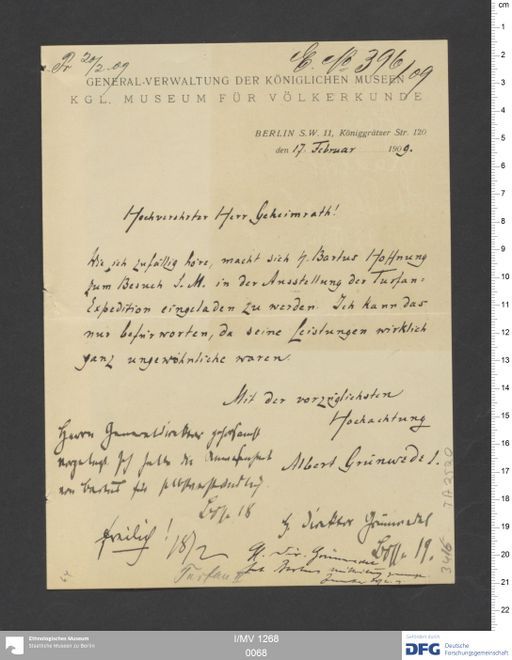 Pr 20/2.09
E. No 396/09
GENERAL-VERWALTUNG DER KÖNIGLICHEN MUSEEN
KGL. MUSEUM FÜR VÖLKERKUNDE
BERLIN S.W. 11, Königgrätzer Str. 120
den 17. Februar 1909.
Hochverehrter Herr Geheimrath!
Wie ich zufällig höre, macht sich H. Bartus Hoffnung
zum Besuch S. M. in der Ausstellung der Turfan-
Expedition eingeladen zu werden. Ich kann das
nur befürworten, da seine Leistungen wirklich
ganz ungewöhnliche waren.
Mit der vorzüglichsten
Hochachtung
Albert Grünwedel.
Herrn Generaldirektor gehorsamst
vorgelegt. Ich halte die Anwesenheit
von Bartus für selbstverständlich
18
freilich!
18/2
Direktor Grünwedel
19.
Dir. Grünwedel
Bartus
Turfan II
TA 2520
3416
I/MV 1268
0068
Ethnologisches Museum
Staatliche Museen zu Berlin
Gefördert durch
DFG Deutsche
Forschungsgemeinschaft
cm
1
2
3
4
5
6
7
8
9
10
11
12
13
14
15
16
17
18
19
20
21
22